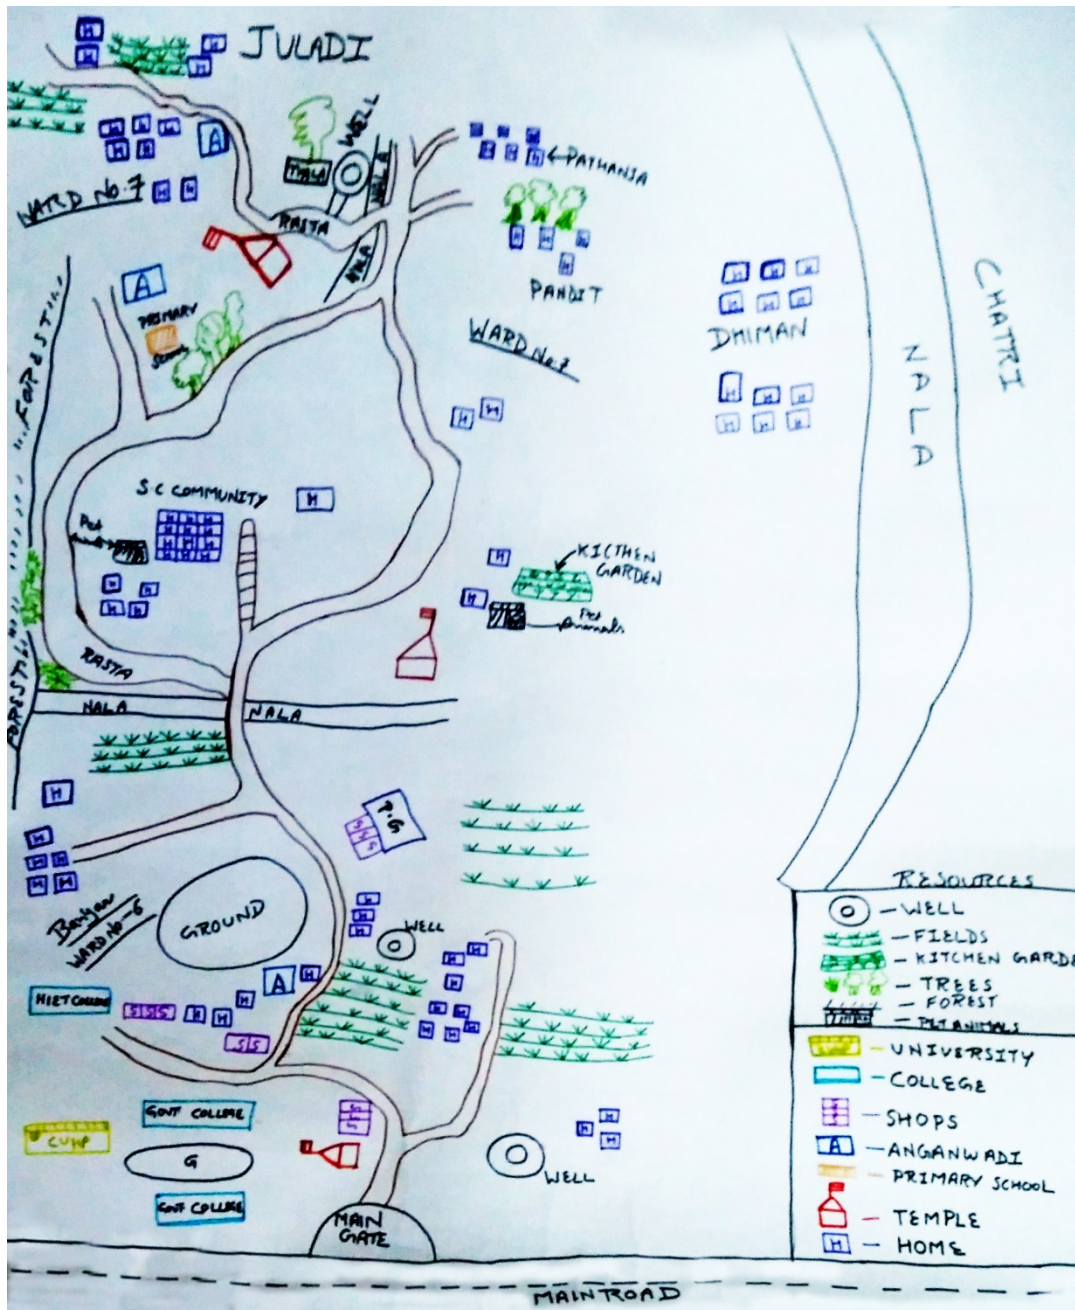 JULADI
WELL
THALA
NALA
← PATHANIA
A
WARD No. 7
RASTA
NALA
PANDIT
A
PRIMARY
SCHOOL
WARD No. 7
DHIMAN
CHATRI
NALA
FOREST
S.C COMMUNITY
H
Pet
KICTHEN
GARDEN
Pet
Animals
RASTA
FOREST
NALA
NALA
P.G
GROUND
WARD No-6
WELL
A
HIET COLLEGE
SSS
SS
GOVT COLLEGE
CUHP
G
GOVT COLLEGE
WELL
MAIN
GATE
MAIN ROAD
RESOURCES
- WELL
- FIELDS
- KITCHEN GARDE
- TREES
- FOREST
- PET ANIMALS
- UNIVERSITY
- COLLEGE
- SHOPS
A - ANGANWADI
- PRIMARY SCHOOL
- TEMPLE
H - HOME